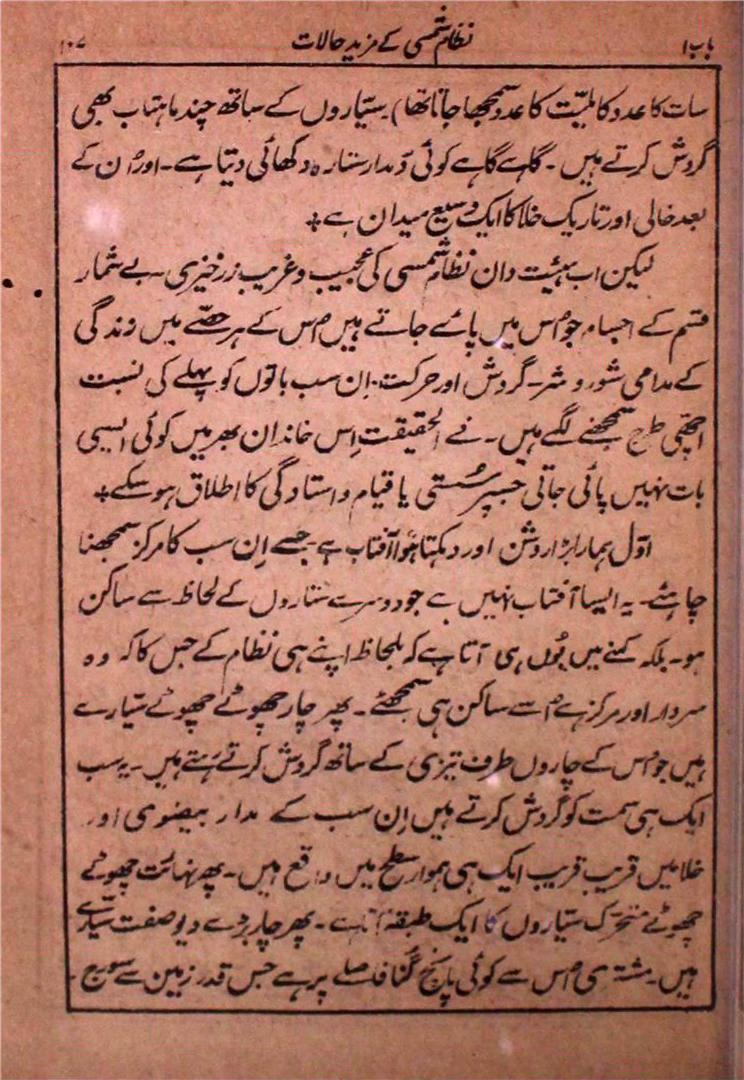 باب ۱ نظام شمسی کے مزید حالات ۱۰۷
سات کا عدد کاملیّت کا عدد سمجھا جاتا تھا) ستیّاروں کے ساتھ چند ماہتاب بھی
گردش کرتے ہیں ۔ گاہے گاہے کوئی دُمدار ستارہ دکھائی دیتا ہے ۔ اور اُن کے
بعد خالی اور تاریک خلا کا ایک وسیع میدان ہے +
لیکن اب ہیئت دان نظام شمسی کی عجیب و غریب زرخیزی ۔ بے شمار
قسم کے اجسام جو اُس میں پائے جاتے ہیں اُس کے ہر حصّے میں زندگی
کے مدامی شور و شر ۔ گردش اور حرکت ۔ اِن سب باتوں کو پہلے کی نسبت
اچھّی طرح سمجھنے لگے ہیں ۔ فے الحقیقت اِس خاندان بھر میں کوئی ایسی
بات نہیں پائی جاتی جسپر سُستی یا قیام و استادگی کا اطلاق ہو سکے +
اوّل ہمارا بڑا روشن اور دہکتا ہُوا آفتاب ہے جسے اِن سب کا مرکز سمجھنا
چاہئے ۔ یہ ایسا آفتاب نہیں ہے جو دوسرے ستاروں کے لحاظ سے ساکن
ہو ۔ بلکہ کہنے میں یُوں ہی آتا ہے کہ بلحاظ اپنے ہی نظام کے جس کا کہ وہ
سردار اور مرکز ہے اُسے ساکن ہی سمجھئے ۔ پھر چار چھوٹے چھوٹے سیّارے
ہیں جو اُس کے چاروں طرف تیزی کے ساتھ گردش کرتے رہتے ہیں ۔ یہ سب
ایک ہی سمت کو گردش کرتے ہیں اِن سب کے مدار بیضوی اور
خلا میں قریب قریب ایک ہی ہموار سطح میں واقع ہیں ۔ پھر نہائت چھوٹے
چھوٹے متحرّک سیّاروں کا ایک طبقہ آتا ہے ۔ پھر چار بڑے دیو صفت سیّارے
ہیں ۔ مشتری اُس سے کوئی پانچ گُنا فاصلے پر ہے جس قدر زمین سے سورج ۔